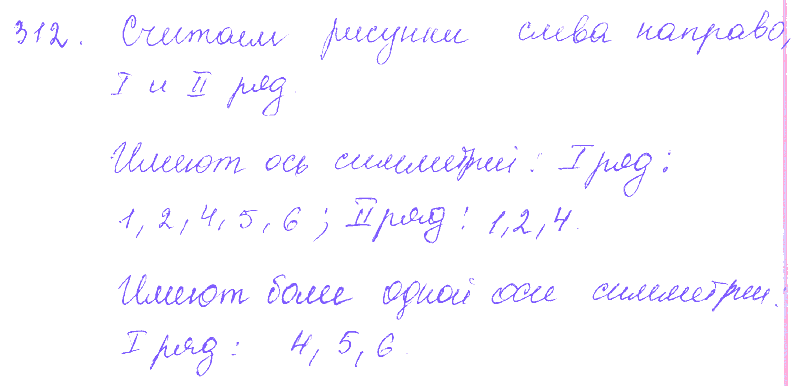 312. Считаем рисунки слева направо,
I и II ряд.
Имеют ось симметрии: I ряд:
1, 2, 4, 5, 6; II ряд: 1, 2, 4.
Имеют более одной оси симметрии:
I ряд: 4, 5, 6.